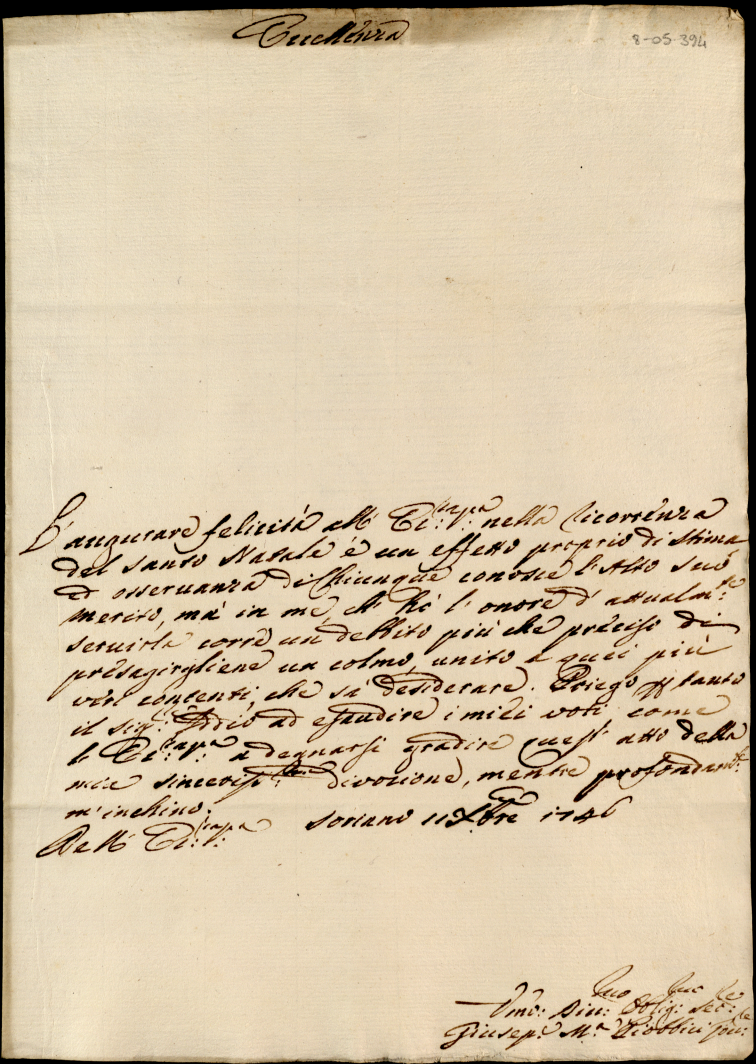 Eccellenza
8-05-394
L'augurare felicità all' Ecc:za V:ra nella ricorrenza
del santo Natale è un effetto proprio di stima
ed osservanza di Chiunque conosce l'Alto suo
merito, mà in me ch' hò l'onore d'attualm:te
servirla corre un debbito più che preciso di
presagirgliene un colmo, unito a quei più
veri contenti, che sà desiderare. Priego p tanto
il sig:r Iddio ad esaudire i miei voti, come
l'Ecc:za V:ra a degnarsi gradire quest' atto della
mia sinceriss:ma divozione, mentre profondam:te
m'inchino.
Dell' Ecc:za V:ra Soriano 11 Xbre 1746
Umo: Div:mo Oblig:mo Ser:re
Giusep:e M:a